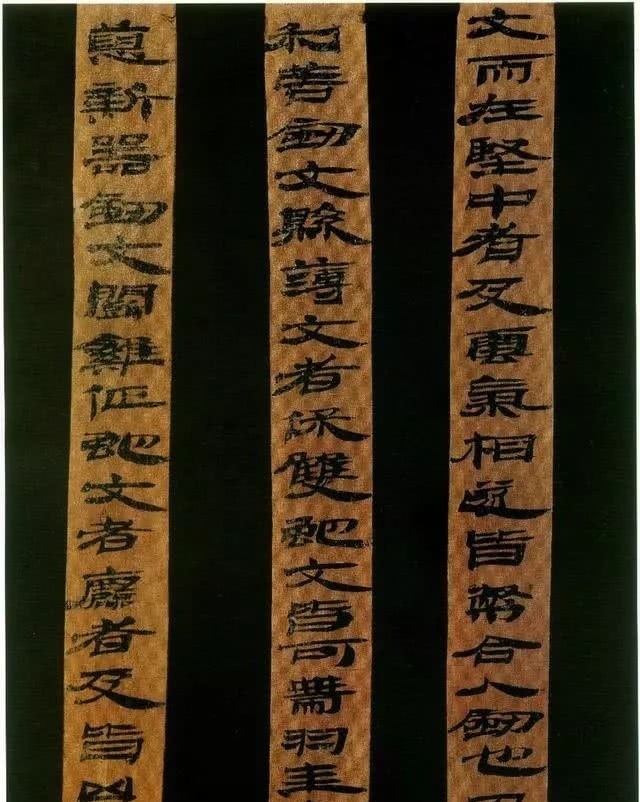 文而在堅中者及雲氣相遂皆幣合人劒也
利善劒文縣薄文者保雙蛇文皆可帶羽圭
新器劒文鬭雞佂蛇文者麤者及皆凶